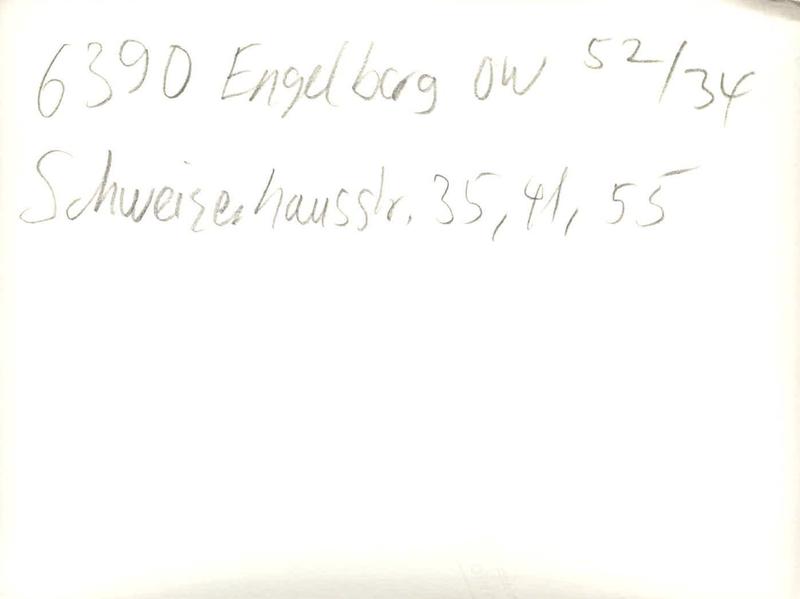 6390 Engelberg OW 52/34
Schweizerhausstr. 35, 41, 55